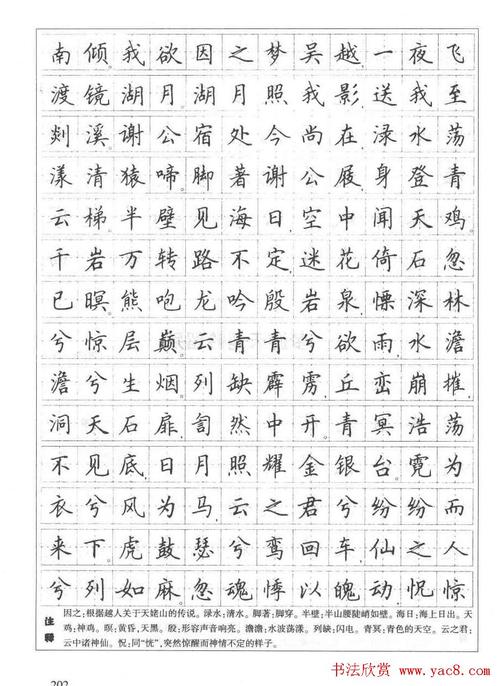 南倾我欲因之梦吴越一夜飞
渡镜湖月湖月照我影送我至
剡溪谢公宿处今尚在渌水荡
漾清猿啼脚著谢公屐身登青
云梯半壁见海日空中闻天鸡
千岩万转路不定迷花倚石忽
已暝熊咆龙吟殷岩泉慄深林
兮惊层巅云青青兮欲雨水澹
澹兮生烟列缺霹雳丘峦崩摧
洞天石扉訇然中开青冥浩荡
不见底日月照耀金银台霓为
衣兮风为马云之君兮纷纷而
来下虎鼓瑟兮鸾回车仙之人
兮列如麻忽魂悸以魄动怳惊
注释
因之;根据越人关于天姥山的传说。绿水;清水。脚著;脚穿。半壁;半山腰陡峭如壁。海日;海上日出。天
鸡;神鸡。暝;黄昏,天黑。殷;形容声音响亮。澹澹;水波荡漾。列缺;闪电。青冥;青色的天空。云之君;
云中诸神仙。怳;同“恍”,突然惊醒而神情不定的样子。
202
书法欣赏
www.yac8.com